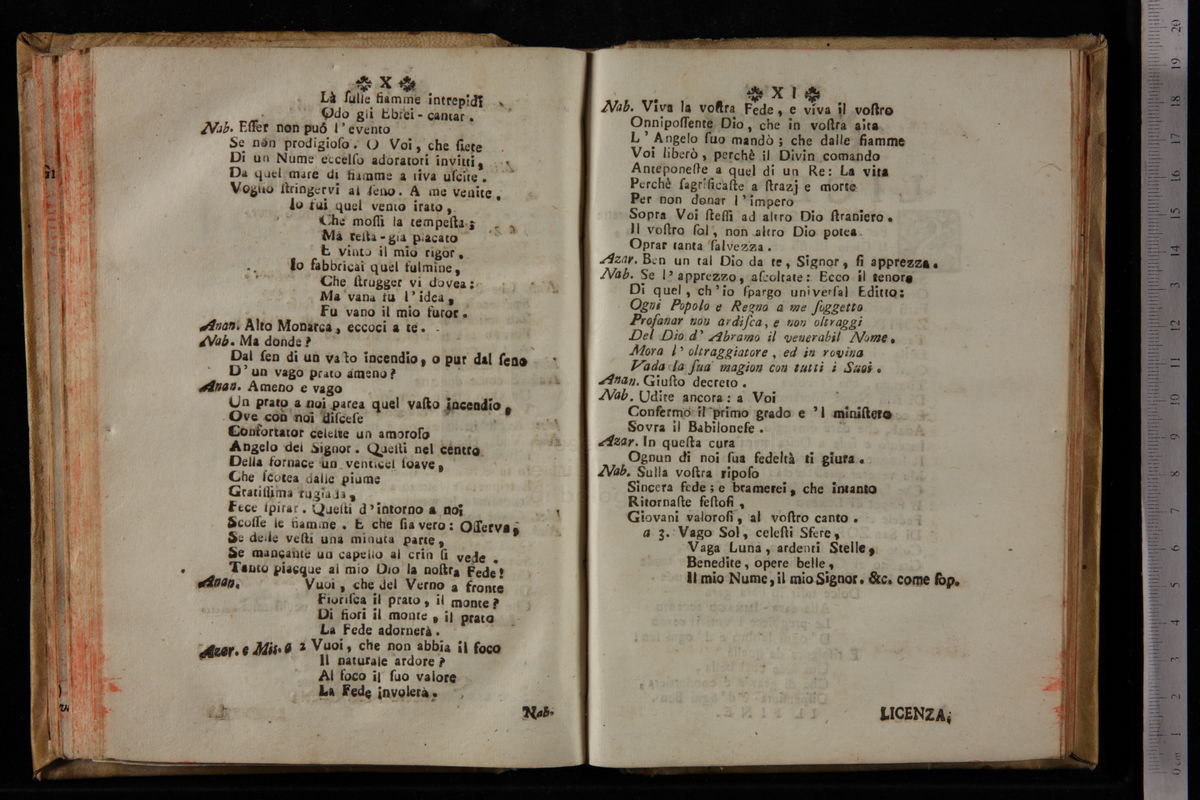 X
Là ſulle fiamme intrepidi
Odo gli Ebrei - cantar.
Nab. Eſſer non può l'evento
Se non prodigioſo. O Voi, che ſiete
Di un Nume eccelſo adoratori invitti,
Da quel mare di fiamme a riva uſcite.
Voglio ſtringervi al ſeno. A me venite.
Io fui quel vento irato,
Che moſſi la tempeſta;
Ma reſta - già placato
E vinto il mio rigor.
Io fabbricai quel fulmine,
Che ſtrugger vi dovea:
Ma vana fu l'idea,
Fu vano il mio furor.
Anan. Alto Monarca, eccoci a te.
Nab. Ma donde?
Dal ſen di un vaſto incendio, o pur dal ſeno
D'un vago prato ameno?
Anan. Ameno e vago
Un prato a noi parea quel vaſto incendio,
Ove con noi diſceſe
Confortator celeſte un amoroſo
Angelo del Signor. Queſti nel centro
Della fornace un venticel ſoave,
Che ſcotea dalle piume
Gratiſſima rugiada,
Fece ſpirar. Queſti d'intorno a noi
Scoſſe le fiamme. E che ſia vero: Oſſerva,
Se delle veſti una minuta parte,
Se mancante un capello al crin ſi vede.
Tanto piacque al mio Dio la noſtra Fede!
Anan. Vuoi, che del Verno a fronte
Fioriſca il prato, il monte?
Di fiori il monte, il prato
La Fede adornerà.
Azar. e Miſ. a 2 Vuoi, che non abbia il foco
Il naturale ardore?
Al foco il ſuo valore
La Fede involerà.
Nab.
XI
Nab. Viva la voſtra Fede, e viva il voſtro
Onnipoſſente Dio, che in voſtra aita
L'Angelo ſuo mandò; che dalle fiamme
Voi liberò, perchè il Divin comando
Anteponeſte a quel di un Re: La vita
Perchè ſagrificaſte a ſtrazj e morte
Per non donar l'impero
Sopra Voi ſteſſi ad altro Dio ſtraniero.
Il voſtro ſol, non altro Dio potea
Oprar tanta ſalvezza.
Azar. Ben un tal Dio da te, Signor, ſi apprezza.
Nab. Se l'apprezzo, aſcoltate: Ecco il tenore
Di quel, ch'io ſpargo univerſal Editto:
Ogni Popolo e Regno a me ſoggetto
Profanar non ardiſca, e non oltraggi
Del Dio d'Abramo il venerabil Nome.
Mora l'oltraggiatore, ed in rovina
Vada la ſua magion con tutti i Suoi.
Anan. Giuſto decreto.
Nab. Udite ancora: a Voi
Confermo il primo grado e 'l miniſtero
Sovra il Babiloneſe.
Azar. In queſta cura
Ognun di noi ſua fedeltà ti giura.
Nab. Sulla voſtra ripoſo
Sincera fede; e bramerei, che intanto
Ritornaſte feſtoſi,
Giovani valoroſi, al voſtro canto.
a 3. Vago Sol, celeſti Sfere,
Vaga Luna, ardenti Stelle,
Benedite, opere belle,
Il mio Nume, il mio Signor. &c. come ſop.
LICENZA.